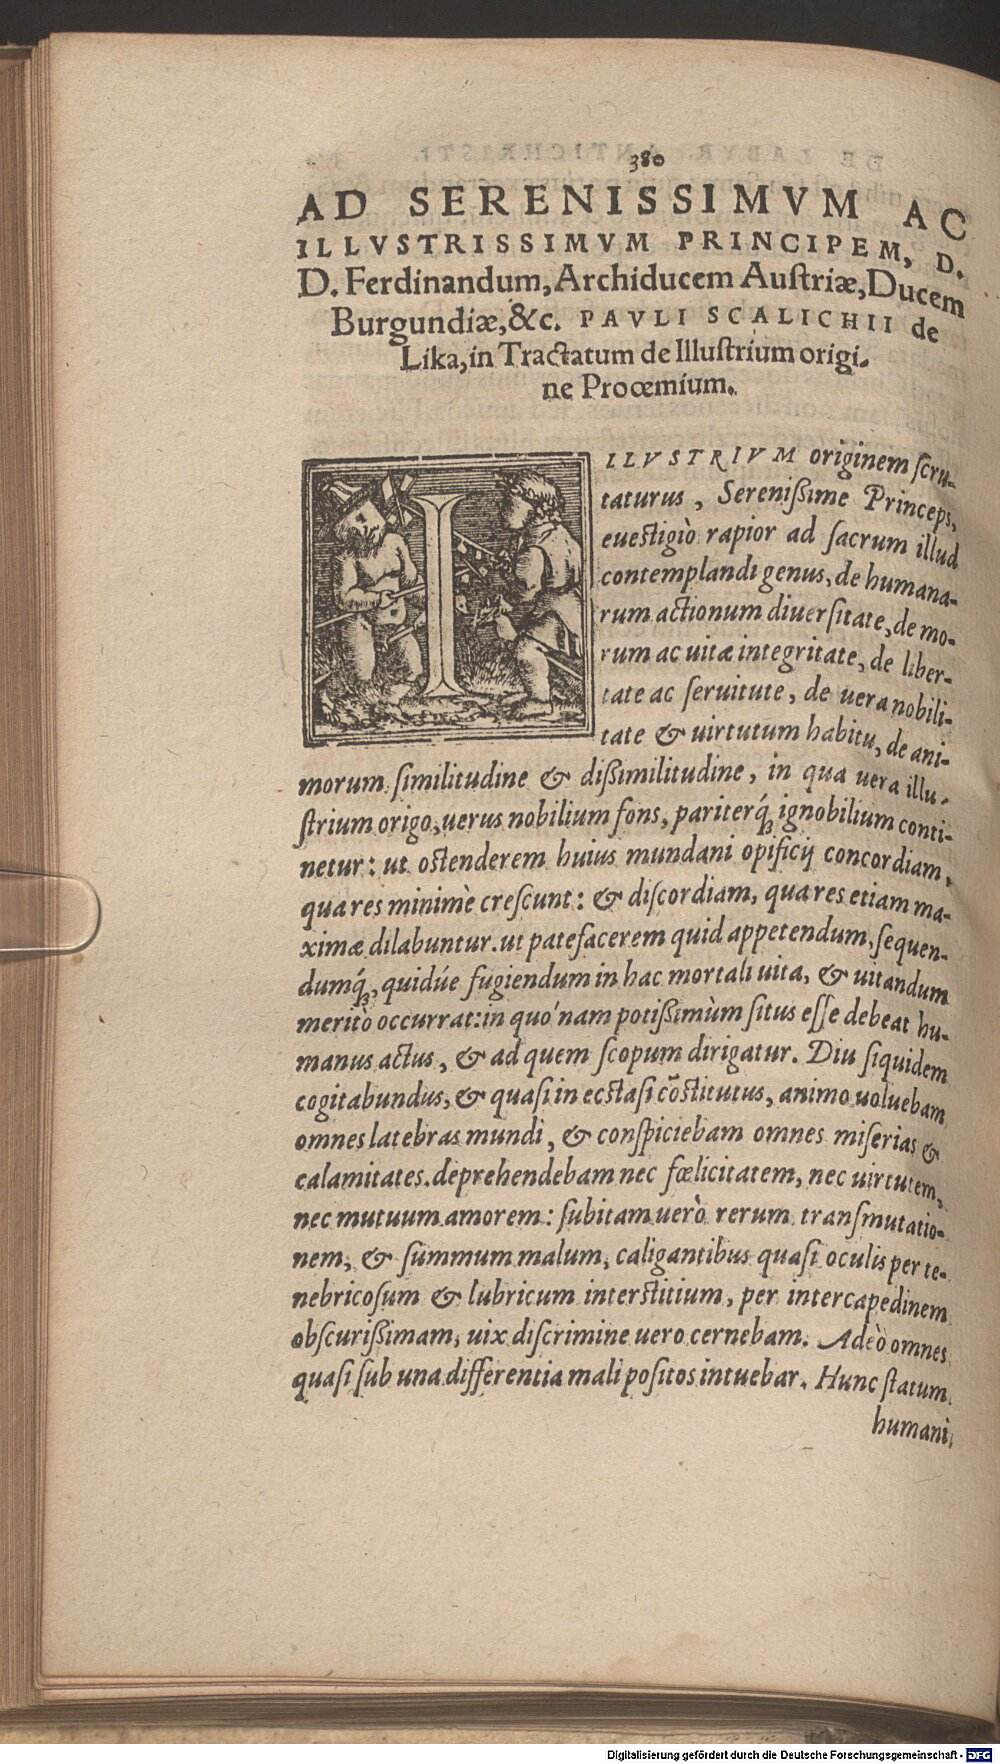 380
AD SERENISSIMVM AC
ILLVSTRISSIMVM PRINCIPEM, D.
D. Ferdinandum, Archiducem Auſtriæ, Ducem
Burgundiæ, &c. PAVLI SCALICHII de
Lika, in Tractatum de Illuſtrium origi-
ne Proœmium.
ILLVSTRIVM originem ſcru-
taturus, Sereniſſime Princeps,
eueſtigiò rapior ad ſacrum illud
contemplandi genus, de humana-
rum actionum diuerſitate, de mo-
rum ac uitæ integritate, de liber-
tate ac ſeruitute, de uera nobili-
tate & uirtutum habitu, de ani-
morum ſimilitudine & diſſimilitudine, in qua uera illu-
ſtrium origo, uerus nobilium fons, pariterq́; ignobilium conti-
netur: ut oſtenderem huius mundani opificij concordiam,
qua res minimè creſcunt: & diſcordiam, qua res etiam ma-
ximæ dilabuntur. ut patefacerem quid appetendum, ſequen-
dumq́;, quidúe fugiendum in hac mortali uita, & uitandum
meritò occurrat: in quo'nam potiſſimùm ſitus eſſe debeat hu-
manus actus, & ad quem ſcopum dirigatur. Diu ſiquidem
cogitabundus, & quaſi in ecſtaſi cõſtitutus, animo uoluebam
omnes latebras mundi, & conſpiciebam omnes miſerias &
calamitates. deprehendebam nec fœlicitatem, nec uirtutem,
nec mutuum amorem: ſubitam uerò rerum tranſmutatio-
nem, & ſummum malum, caligantibus quaſi oculis per te-
nebricoſum & lubricum interſtitium, per intercapedinem
obſcuriſſimam, uix diſcrimine uero cernebam. Adeò omnes
quaſi ſub una differentia mali poſitos intuebar. Hunc ſtatum
humani,
Digitalisierung gefördert durch die Deutsche Forschungsgemeinschaft - DFG